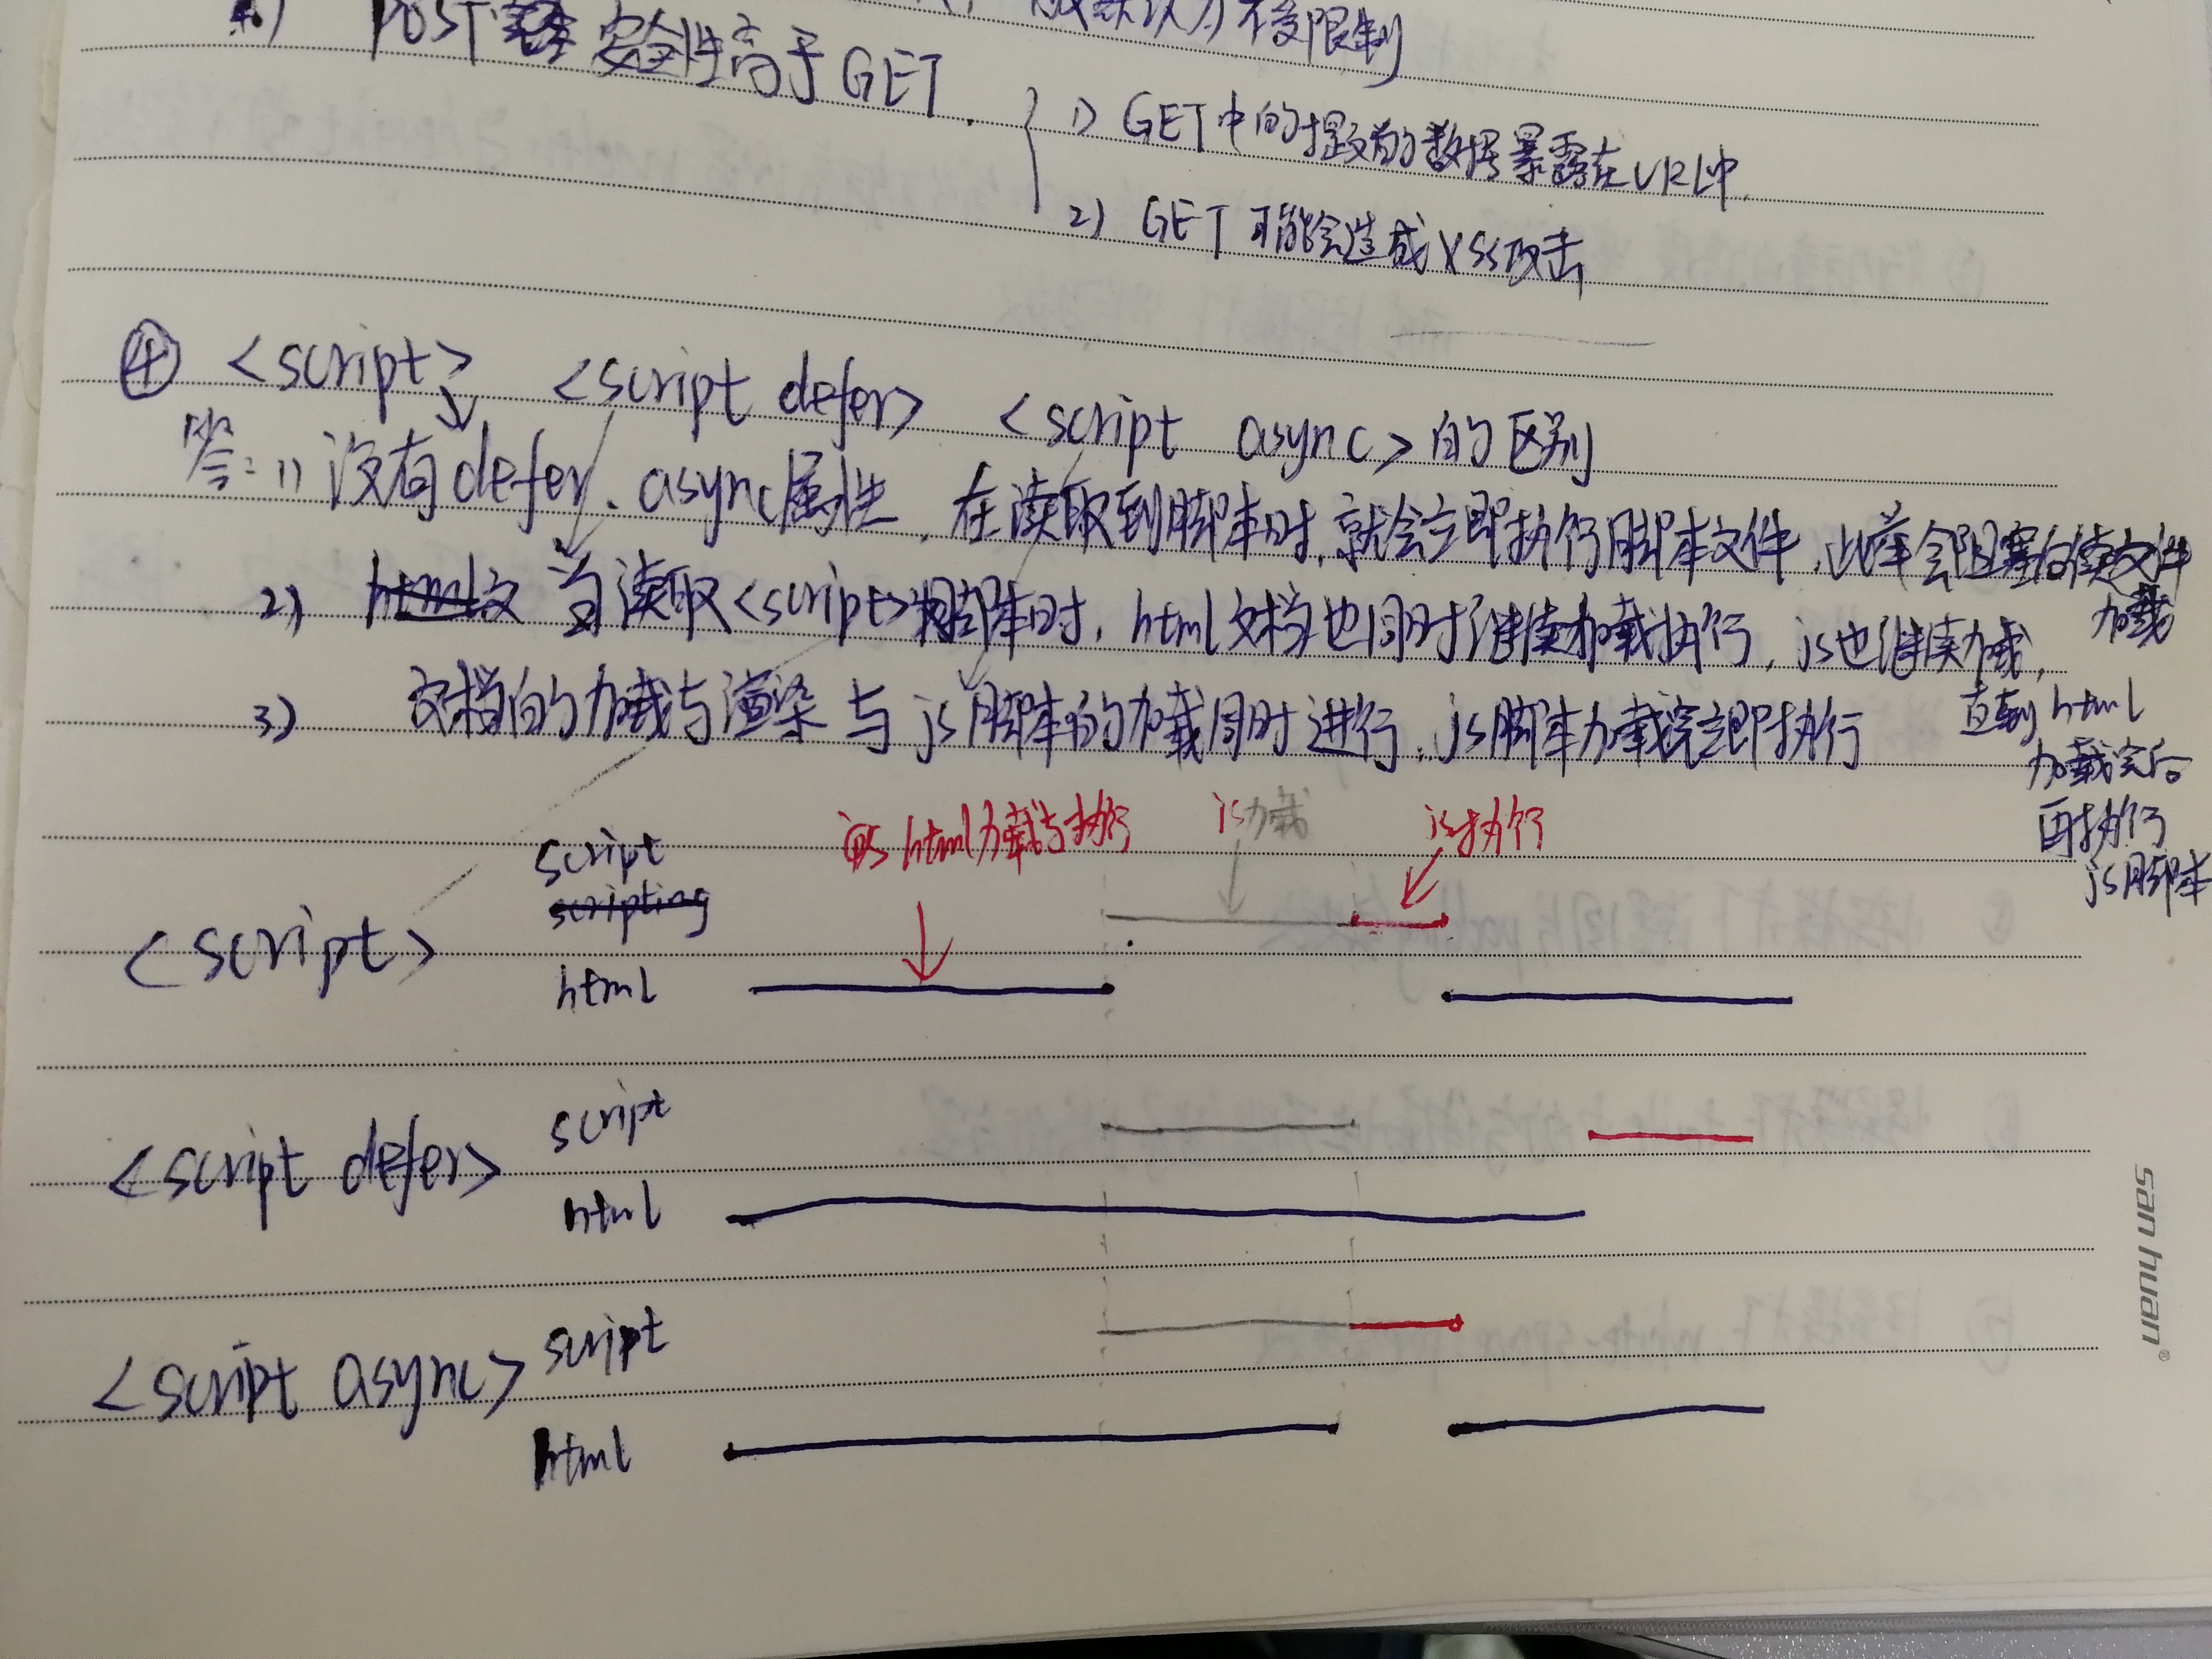 不受限制
POST 安全性高于GET.
1) GET中的提交的数据暴露在URL中.
2) GET可能会造成XSS攻击
④ <script> <script defer> <script async>的区别
答: 1) 没有defer、async属性, 在读取到脚本时, 就会立即执行脚本文件, 此举会阻塞后续文件
加载
2) html文 当读取<script>脚本时, html文档也同时继续加载执行, js也继续加载,
直到html
加载完后
再执行
js脚本
3) 文档的加载与渲染与js脚本的加载同时进行, js脚本加载完立即执行
html加载与执行 js加载 js执行
script
scripting
<script>
html
script
<script defer>
html
script
<script async>
html
san huan®